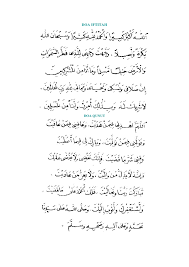 DOA IFTITAH
اَللّٰهُ اَكْبَرُ كَبِيْرًا وَالْحَمْدُ لِلّٰهِ كَثِيْرًا وَسُبْحَانَ اللّٰهِ
بُكْرَةً وَاَصِيْلًا وَجَّهْتُ وَجْهِيَ لِلَّذِيْ فَطَرَ السَّمٰوَاتِ
وَالْاَرْضَ حَنِيْفًا مُسْلِمًا وَمَا اَنَا مِنَ الْمُشْرِكِيْنَ
اِنَّ صَلَاتِيْ وَنُسُكِيْ وَمَحْيَايَ وَمَمَاتِيْ لِلّٰهِ رَبِّ الْعَالَمِيْنَ
لَا شَرِيْكَ لَهُ وَبِذٰلِكَ اُمِرْتُ وَاَنَا مِنَ الْمُسْلِمِيْنَ
DOA QUNUT
اَللّٰهُمَّ اهْدِنِيْ فِيْمَنْ هَدَيْتَ وَعَافِنِيْ فِيْمَنْ عَافَيْتَ
وَتَوَلَّنِيْ فِيْمَنْ تَوَلَّيْتَ وَبَارِكْ لِيْ فِيْمَا اَعْطَيْتَ
وَقِنِيْ شَرَّ مَا قَضَيْتَ فَاِنَّكَ تَقْضِيْ وَلَا يُقْضٰى عَلَيْكَ
وَاِنَّهُ لَا يَذِلُّ مَنْ وَالَيْتَ وَلَا يَعِزُّ مَنْ عَادَيْتَ
تَبَارَكْتَ رَبَّنَا وَتَعَالَيْتَ فَلَكَ الْحَمْدُ عَلٰى مَا قَضَيْتَ
وَاَسْتَغْفِرُكَ وَاَتُوْبُ اِلَيْكَ وَصَلَّى اللّٰهُ عَلٰى سَيِّدِنَا
مُحَمَّدٍ وَعَلٰى اٰلِهِ وَصَحْبِهِ وَسَلَّمَ